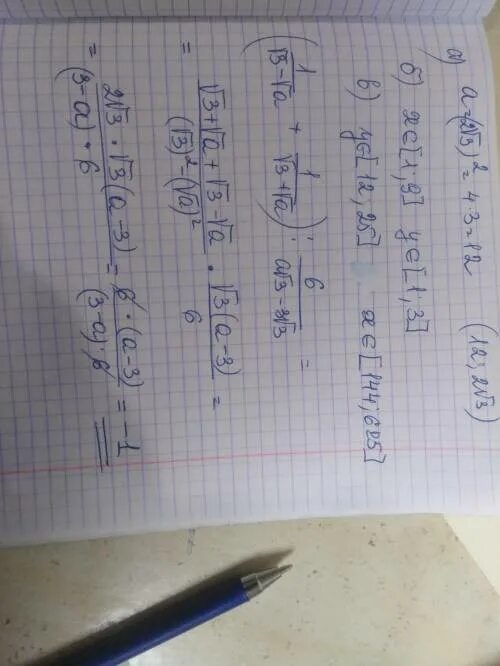 а) a=(2√3)²=4·3=12 (12; 2√3)
б) x∈[1;9] y∈[1;3]
в) y∈[12;25] x∈[144;625]
(1/(√3-√a) + 1/(√3+√a)) : 6/(a√3-3√3) =
= (√3+√a+√3-√a)/((√3)²-(√a)²) · √3(a-3)/6 =
= 2√3·√3(a-3)/((3-a)·6) = 6·(a-3)/((3-a)·6) = -1